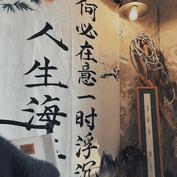 人生海
何必在意一时浮沉